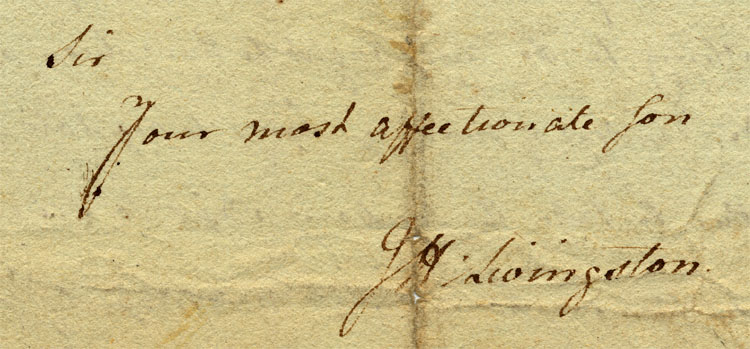 Sir
Your most affectionate son
J H Livingston.